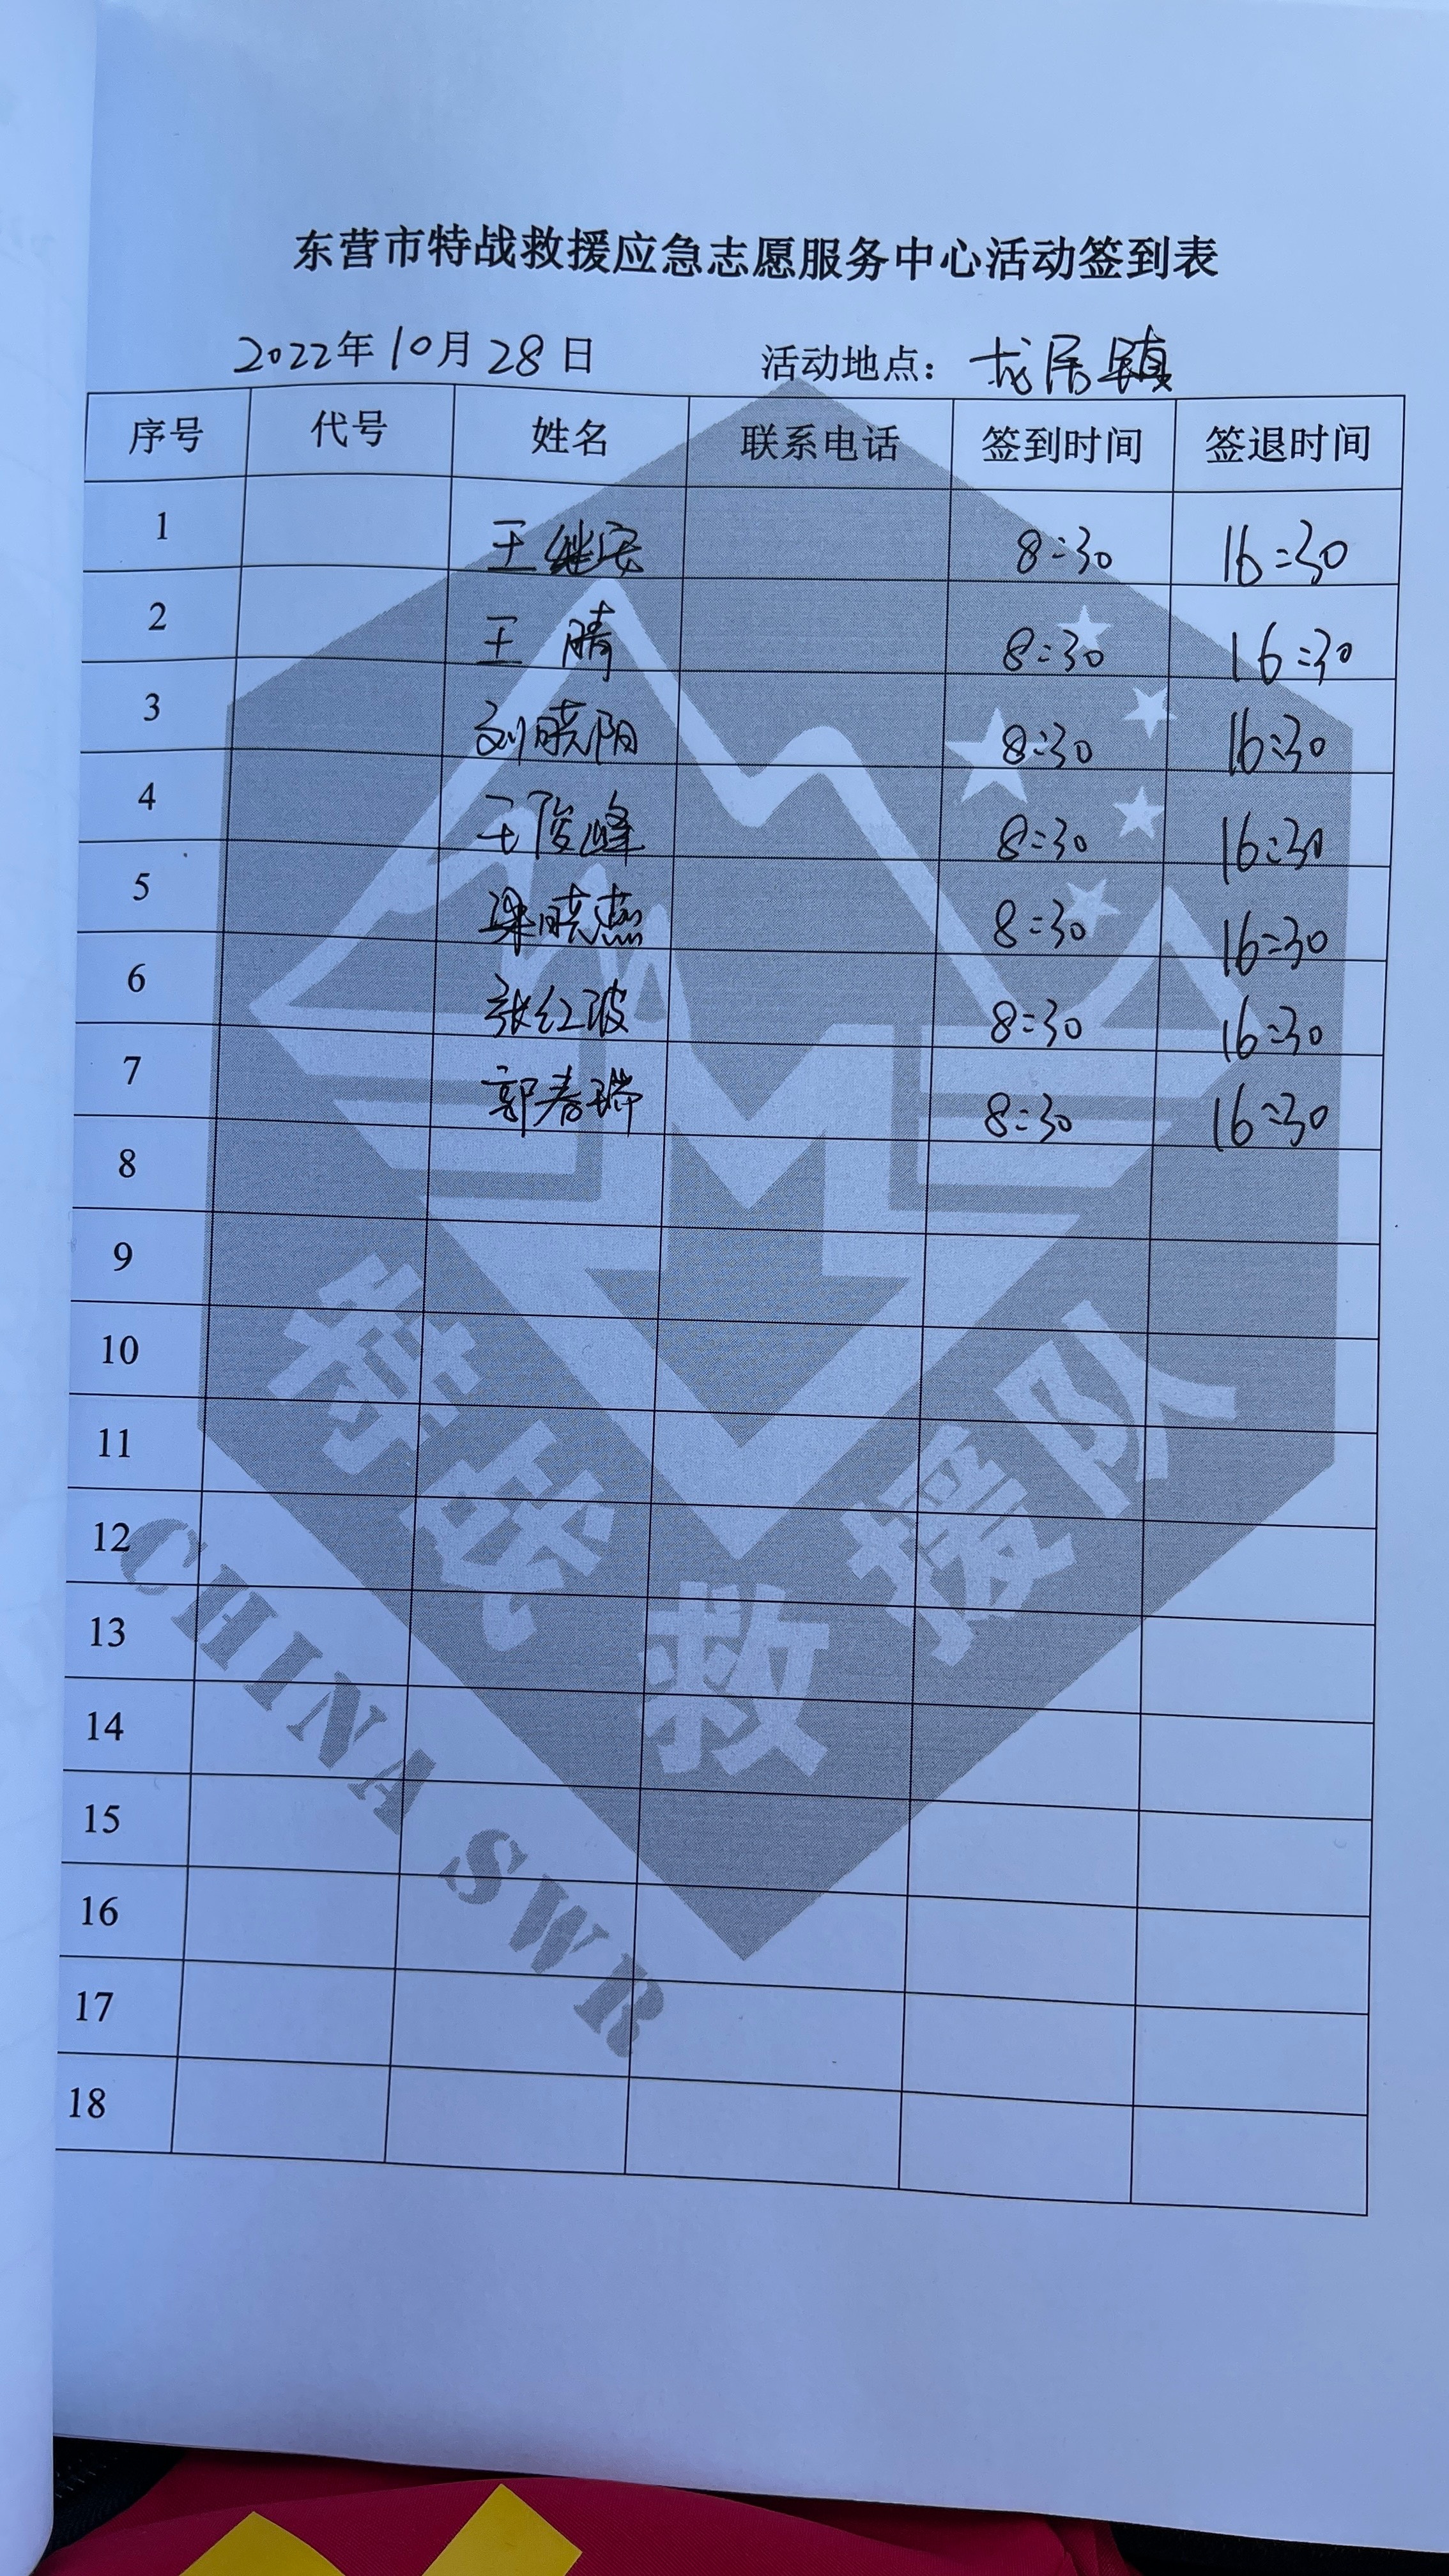 东营市特战救援应急志愿服务中心活动签到表
2022年10月28日 活动地点：龙居镇
序号 代号 姓名 联系电话 签到时间 签退时间
1 王继 8:30 16:30
2 王晴 8:30 16:30
3 刘晓阳 8:30 16:30
4 王俊峰 8:30 16:30
5 梁晓燕 8:30 16:30
6 张红波 8:30 16:30
7 郭春瑞 8:30 16:30
8
9
10
11
12
13
14
15
16
17
18
特战救援队
CHINA SWR